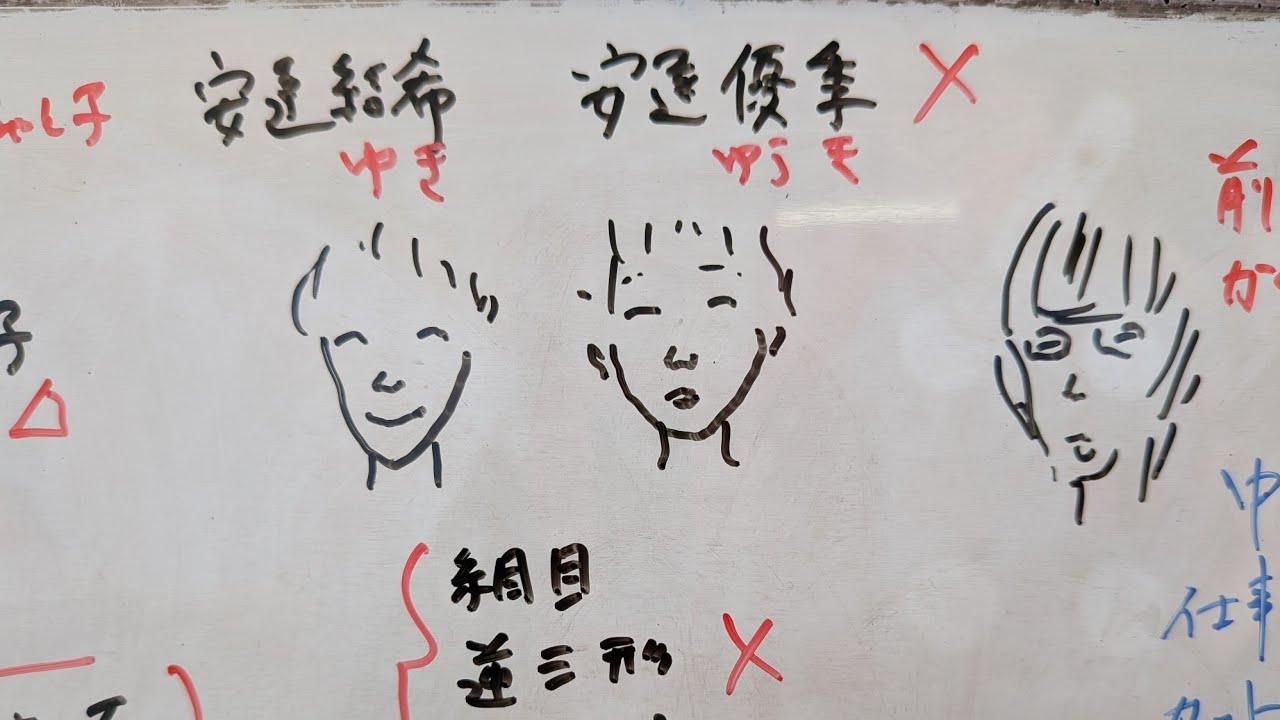 ゃし子
安達結希
ゆき
安達優季 ×
ゆうき
前
か
子
△
ゆ
仕事
カット
網目
逆三形 ×